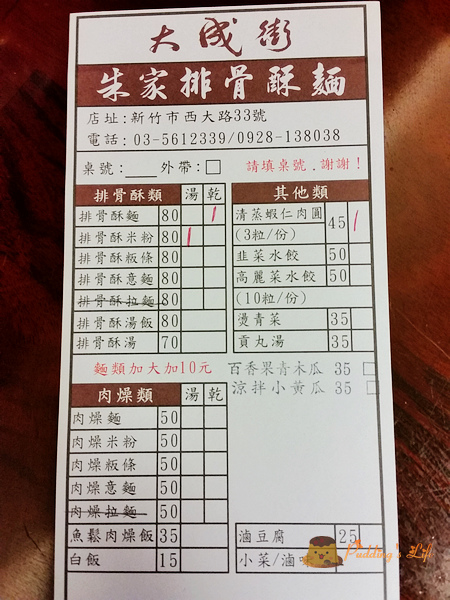 大成街
朱家排骨酥麵
店址:新竹市西大路33號
電話:03-5612339/0928-138038
桌號:____外帶:□ 請填桌號.謝謝!
排骨酥類 湯 乾
排骨酥麵 80
排骨酥米粉 80
排骨酥粄條 80
排骨酥意麵 80
排骨酥拉麵 80
排骨酥湯飯 80
排骨酥湯 70
其他類
清蒸蝦仁肉圓 45
(3粒/份)
韭菜水餃 50
高麗菜水餃 50
(10粒/份)
燙青菜 35
貢丸湯 35
麵類加大加10元
百香果青木瓜 35 □
涼拌小黃瓜 35 □
肉燥類 湯 乾
肉燥麵 50
肉燥米粉 50
肉燥粄條 50
肉燥意麵 50
肉燥拉麵 50
魚鬆肉燥飯 35
白飯 15
滷豆腐 25
小菜/滷味
Pudding's Life